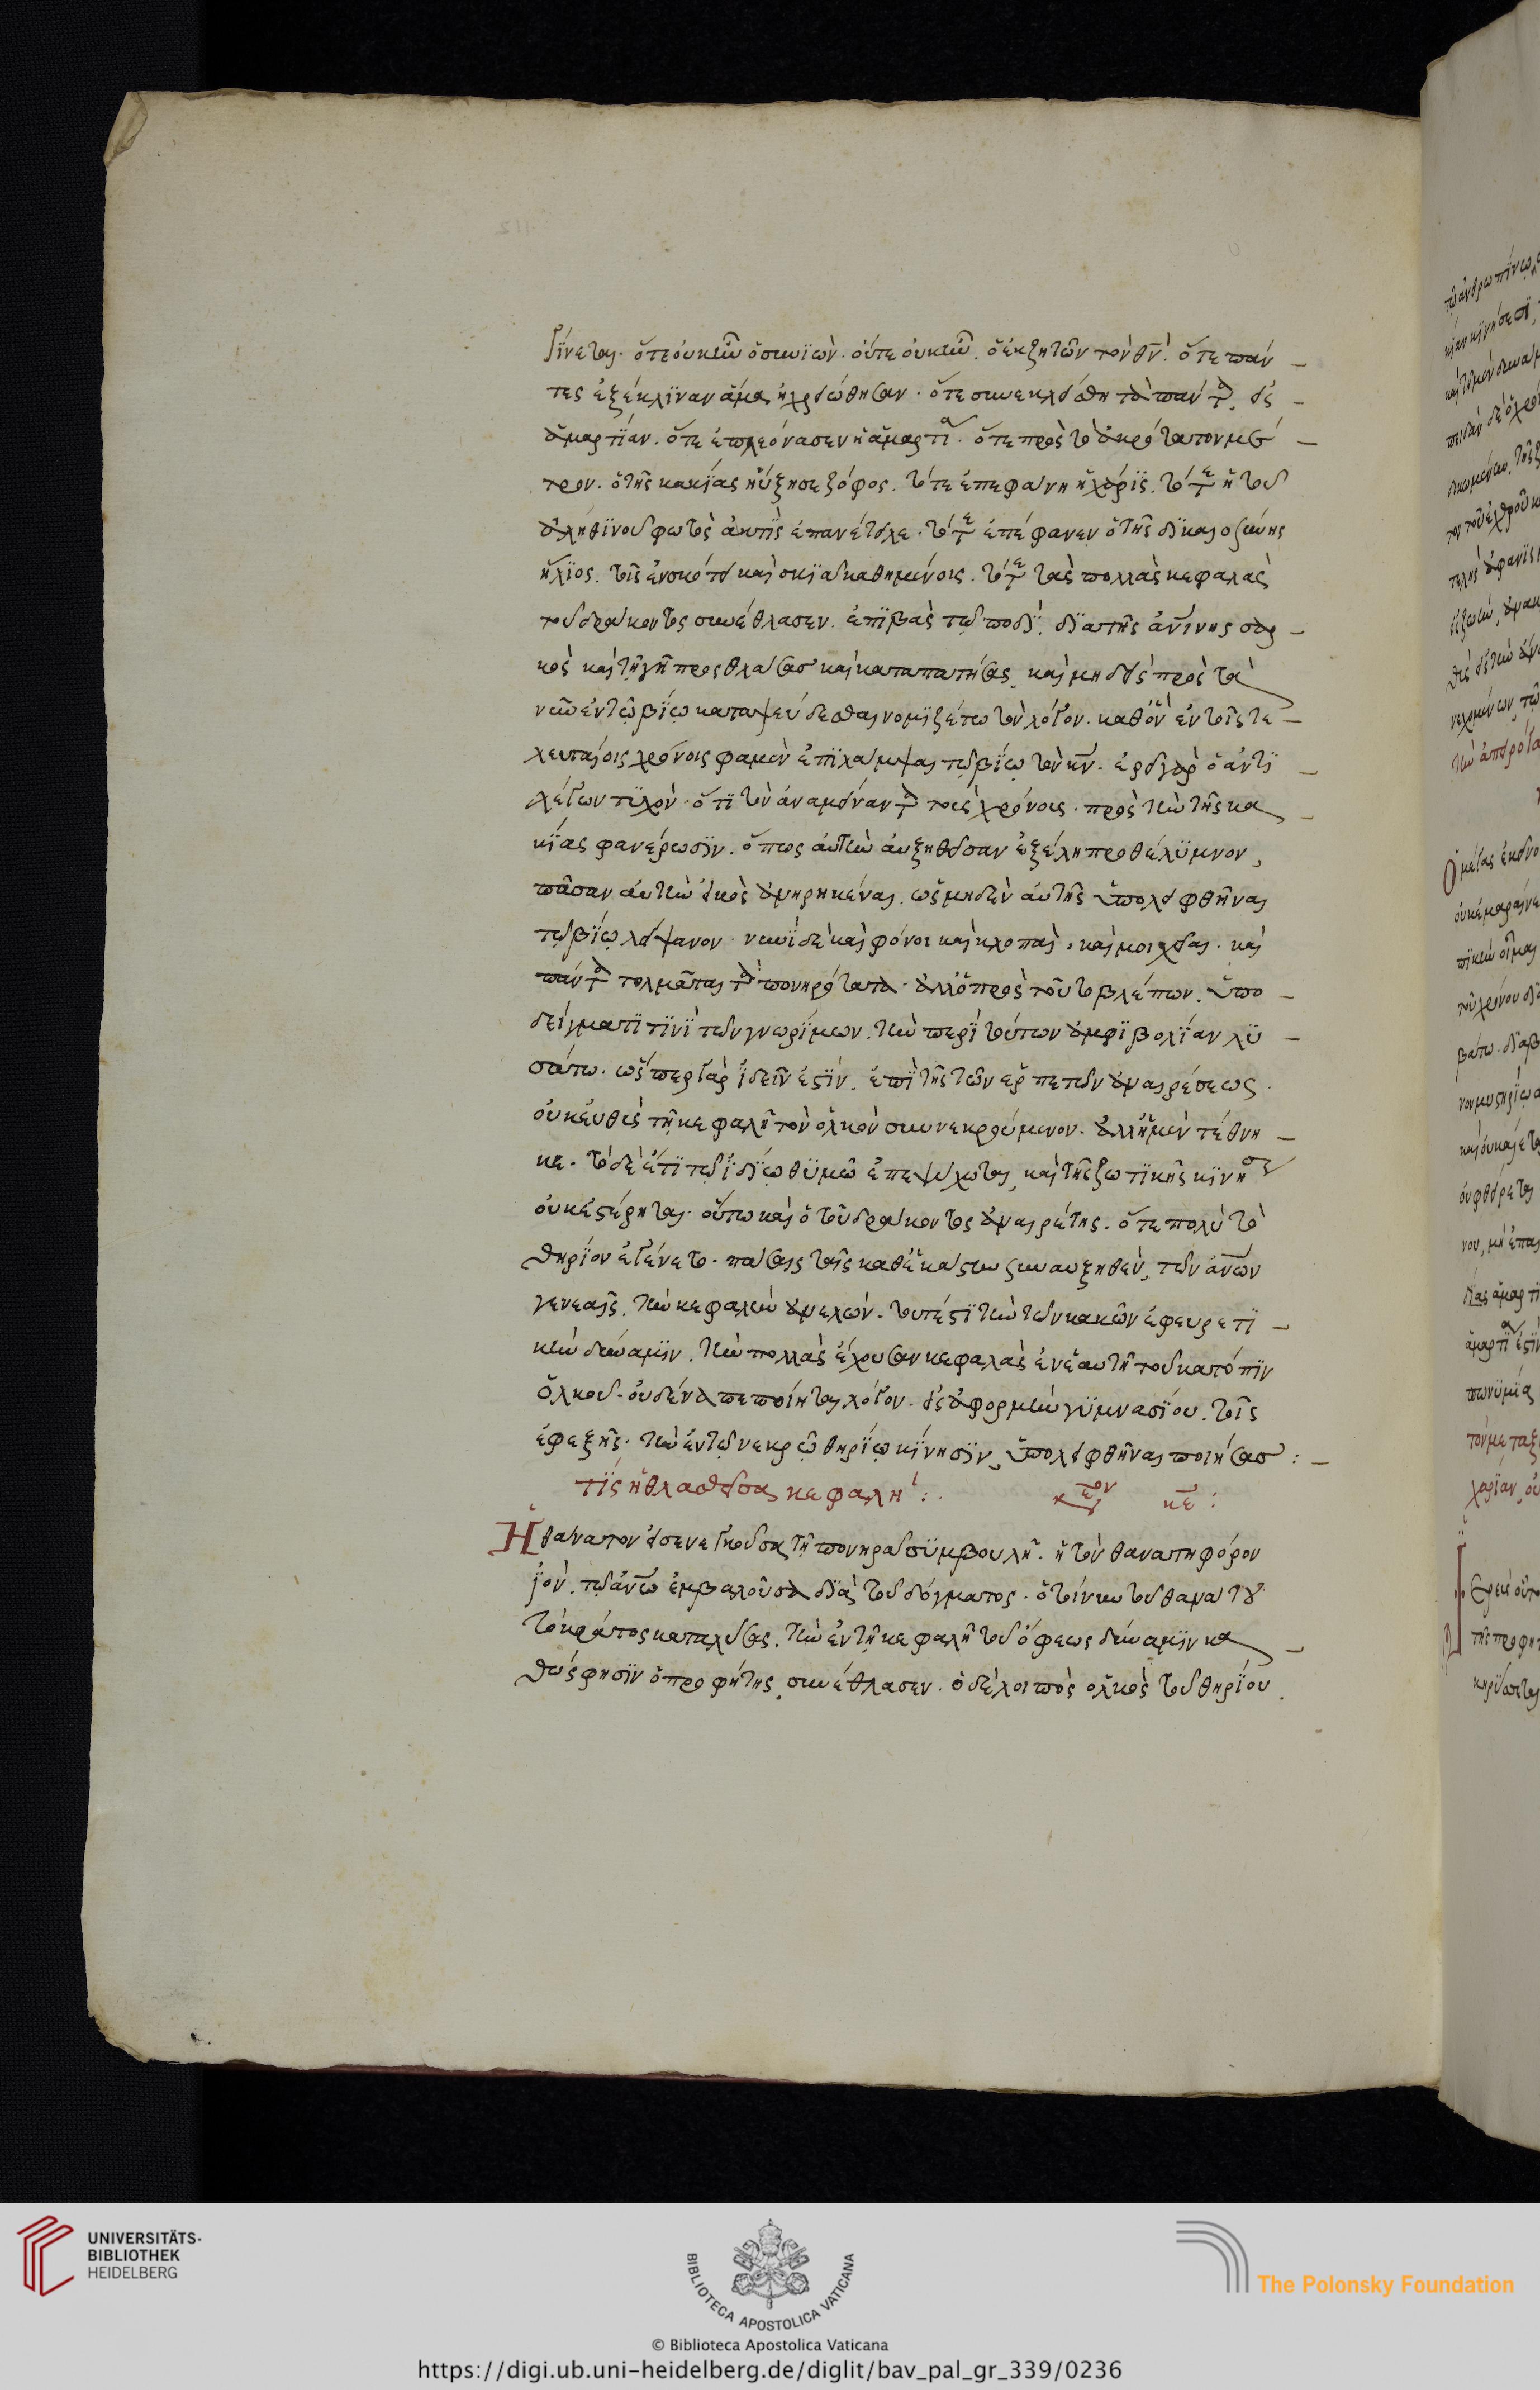 γίνεται· ὅτε οὐκ ἦν ὁ συνϊών· οὔτε οὐκ ἦν. ὁ ἐκζητῶν τὸν θν̅. ὅτε πάν
τες ἐξέκλϊναν ἅμα ἠχρειώθησαν· ὅτε συνεκλείσθη τὰ πάντα εἰς
ἁμαρτΐαν. ὅτε ἐπλεόνασεν ἡ ἁμαρτία. ὅτε πρὸς τὸ ἀκρότατον μέ
τρον. ὁ τῆς κακΐας ηὔξησε ζόφος. τότε ἐπεφάνη ἡ χάρϊς. τότε ἡ τοῦ
ἀληθϊνοῦ φωτὸς ἀκτῒς ἐπανέτειλε· τότε ἐπέφανεν ὁ τῆς δϊκαιοσύνης
ἥλϊος. τοῖς ἐν σκότει καὶ σκϊᾷ καθημένοις. τότε τὰς πολλὰς κεφαλὰς
τοῦ δράκοντος συνέθλασεν. ἐπϊβὰς τῷ ποδΐ. δϊὰ τῆς ἀν̅ινης σαρ
κὸς καὶ τῇ γῇ προσθλάσας καὶ καταπατήσας, καὶ μηδεὶς πρὸς τὰ
νῦν ἐν τῷ βΐῳ καταψεύδεσθαι νομϊζέτω τὸν λόγον. καθ' ὃν ἐν τοῖς τε
λευταίοις χρόνοις φαμὲν ἐπϊλάμψαι τῷ βΐῳ τὸν κν̅. ἐρεῖ γὰρ ὁ ἀντϊ
λέγων τϊχὸν· ὅτϊ τὸν ἀναμείναντα τοῖς χρόνοις. πρὸς τὴν τῆς κα
κΐας φανέρωσϊν. ὅπως αὐτὴν αὐξηθεῖσαν ἐξέλῃ προθέλϋμνον,
πᾶσαν αὐτὴν εἰκὸς ἀνῃρηκέναι. ὡς μηδὲν αὐτῆς ὑπολειφθῆναι
τῷ βΐῳ λείψανον· νυνῒ δὲ καὶ φόνοι καὶ κλοπαὶ, καὶ μοιχεῖαι. καὶ
πάντα τολμᾶται τὰ πονηρότατα· ἀλλ' ὁ πρὸς τοῦτο βλέπων. ὑπο
δείγματϊ τϊνῒ τῶν γνωρΐμων. τὴν περῒ τούτων ἀμφϊβολΐαν λϋ
σάτω. ὥσπερ γὰρ ἰδεῖν ἐστϊν. ἐπῒ τῆς τῶν ἑρπετῶν ἀναιρέσεως.
οὐκ εὐθὺς τῇ κεφαλῇ τὸν ὁλκὸν συννεκρούμενον. ἀλλ' ἡ μὲν τέθνη
κε. τὸ δὲ ἔτϊ τῷ ἰδΐῳ θϋμῷ ἐπεψύχωται, καὶ τῆς ζωτϊκῆς κϊνήσεως
οὐκ ἐστέρηται. οὕτω καὶ ὁ τοῦ δράκοντος ἀναιρέτης. ὅτε πολὺ τὸ
θηρΐον ἐγένετο. πάσαις ταῖς καθέκαστην συναυξηθὲν, τῶν ἀν̅ων
γενεαῖς. τὴν κεφαλὴν ἀνελών. τουτέστϊ τὴν τῶν κακῶν ἐφευρετϊ
κὴν δύναμϊν. τὴν πολλὰς ἔχουσαν κεφαλὰς ἐν ἑαυτῇ τοῦ κατόπϊν
ὁλκοῦ. οὐδένα πεποίηται λόγον. εἰς ἀφορμὴν γϋμνασΐου. τοῖς
ἐφεξῆς. τὴν ἐν τῷ νεκρῷ θηρΐῳ κΐνησϊν, ὑπολειφθῆναι ποιήσας :
τΐς ἡ θλασθεῖσα κεφαλή : κείμενον κε̅ :
Ἡ θάνατον εἰσενεγκοῦσα τῇ πονηρᾷ σϋμβουλῇ. ἡ τὸν θανατηφόρον
ἰὸν. τῷ ἀν̅ω ἐμβαλοῦσα δϊὰ τοῦ δόγματος. ὁ τοίνυν τοῦ θανάτου
τὸ κράτος καταλύσας. τὴν ἐν τῇ κεφαλῇ τοῦ ὄφεως δύναμϊν κα
θώς φησϊν ὁ προφήτης, συνέθλασεν. ὁ δὲ λοιπὸς ὁλκὸς τοῦ θηρΐου.
UNIVERSITÄTS-
BIBLIOTHEK
HEIDELBERG
BIBLIOTECA APOSTOLICA VATICANA
© Biblioteca Apostolica Vaticana
The Polonsky Foundation
https://digi.ub.uni-heidelberg.de/diglit/bav_pal_gr_339/0236